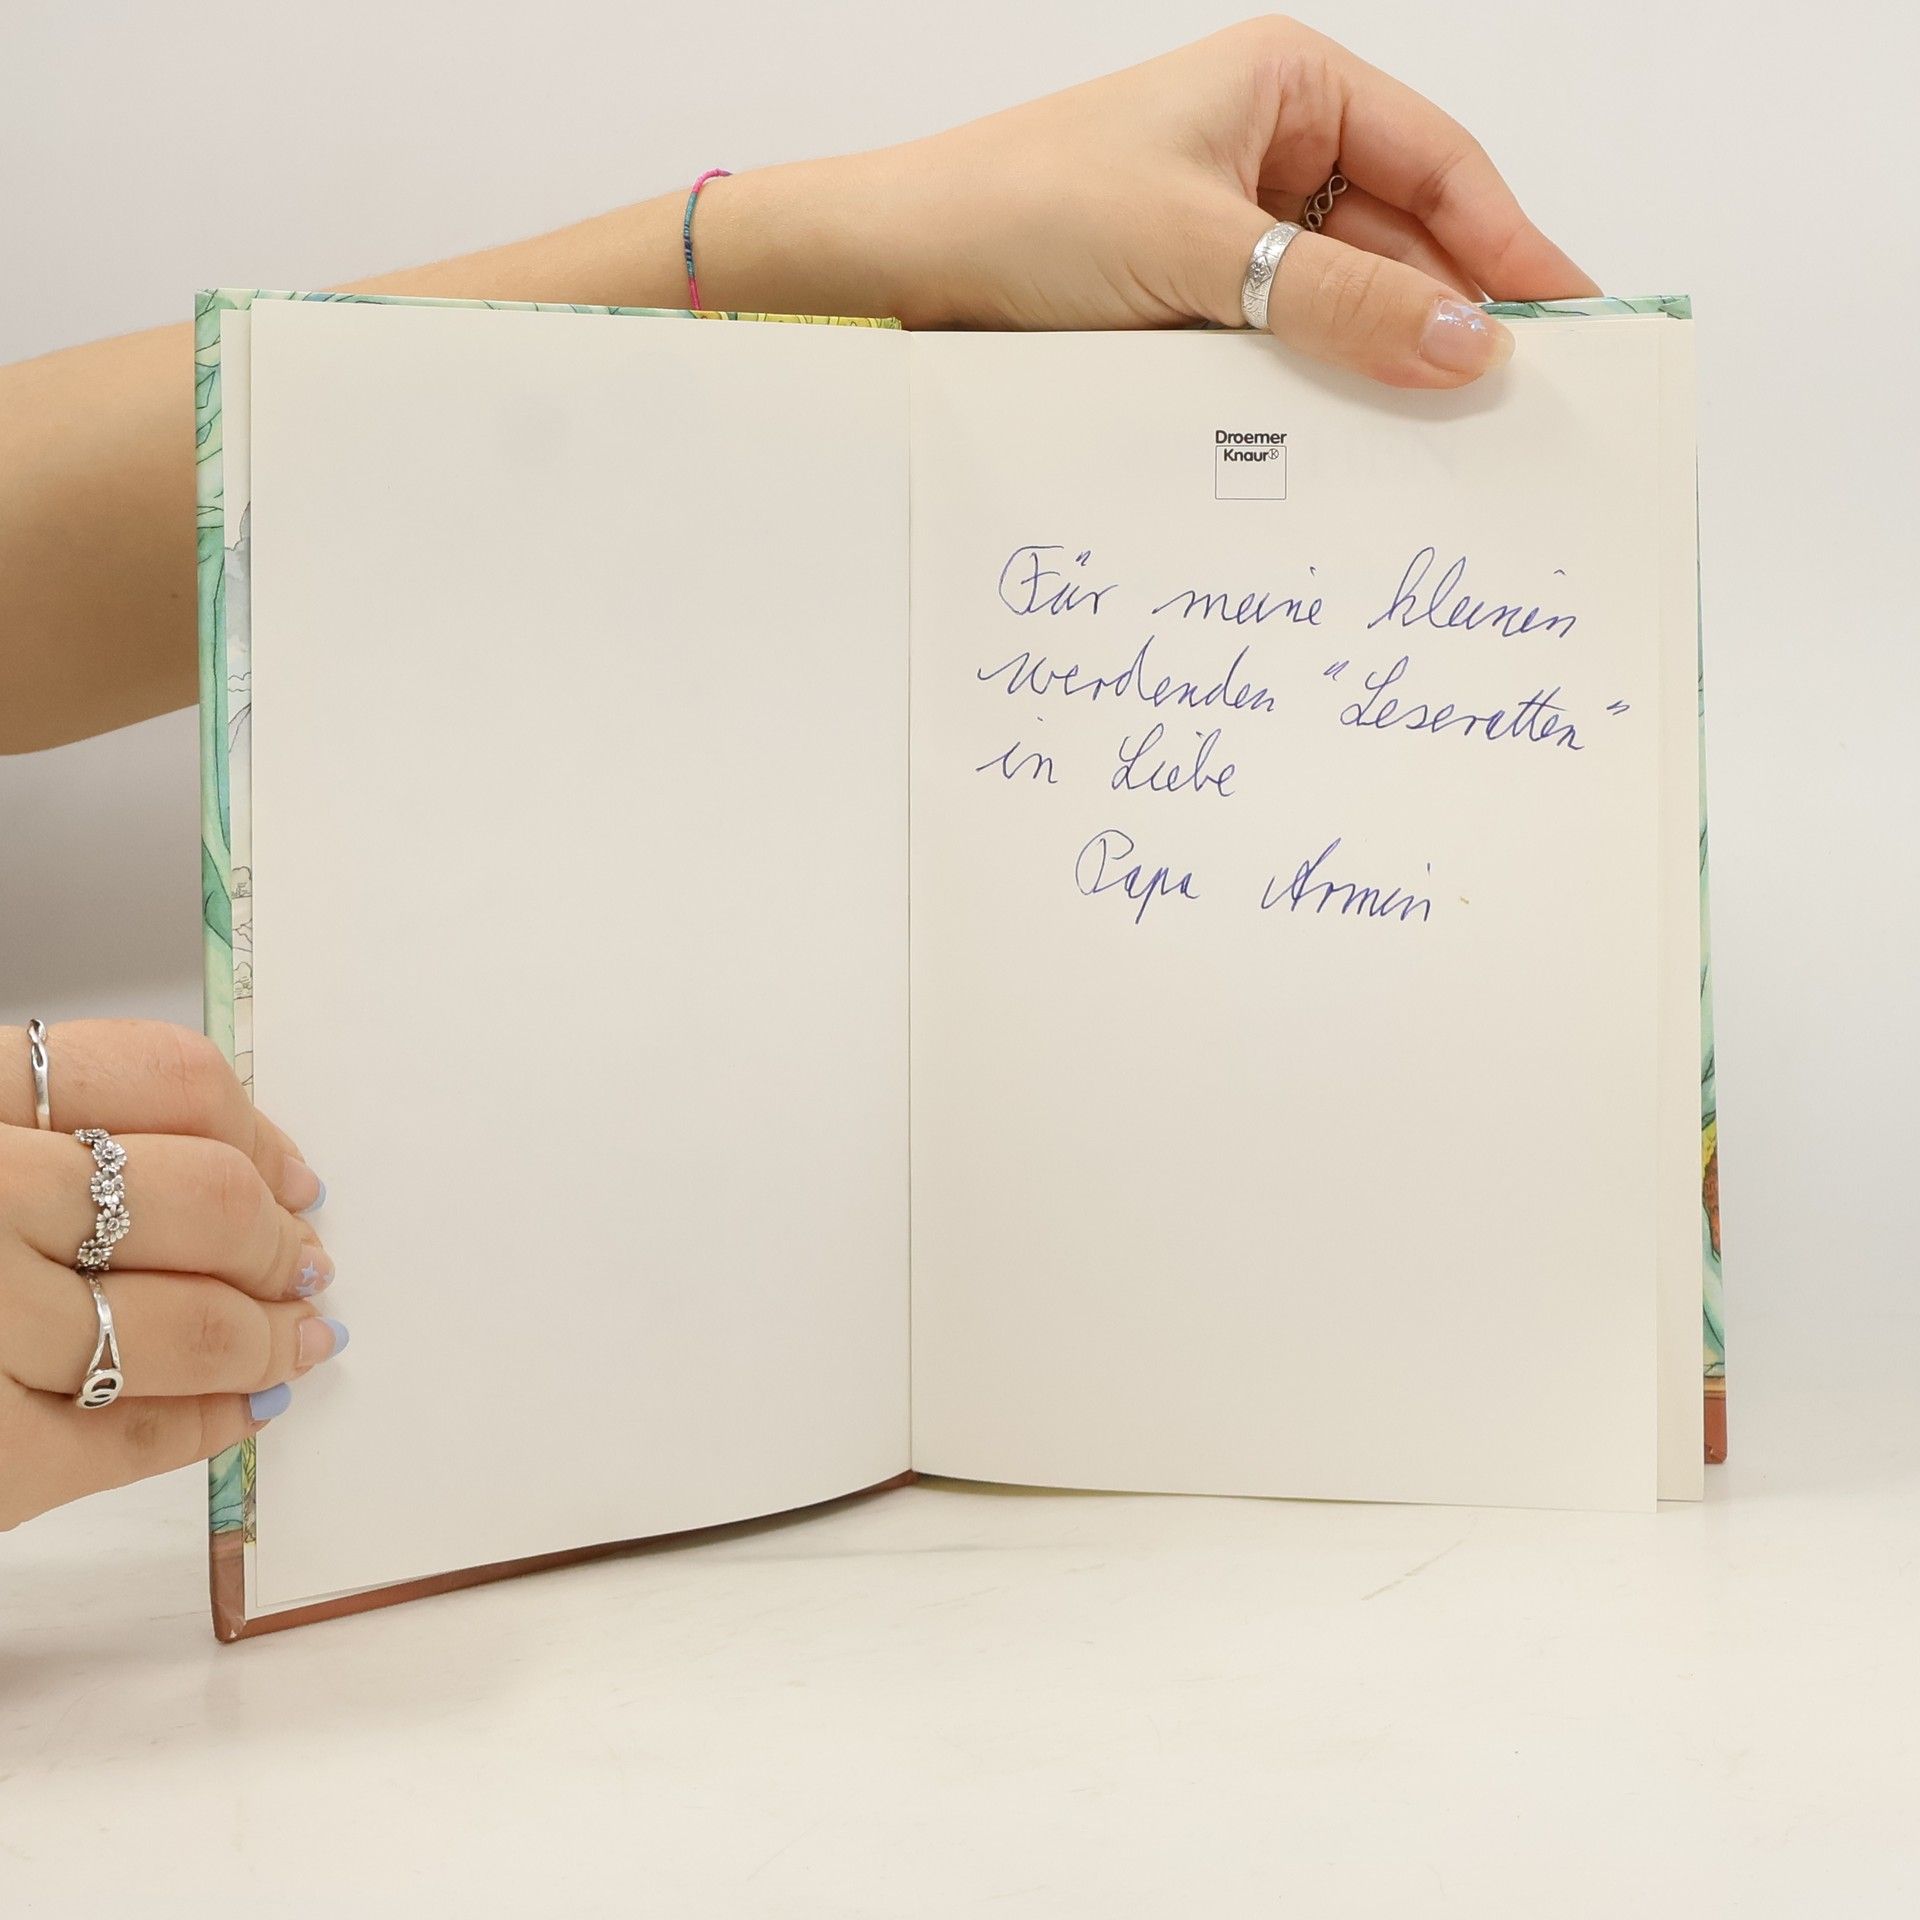 Droemer
Knaur®
Für meine kleinen
werdenden "Leseratten"
in Liebe
Papa Armin